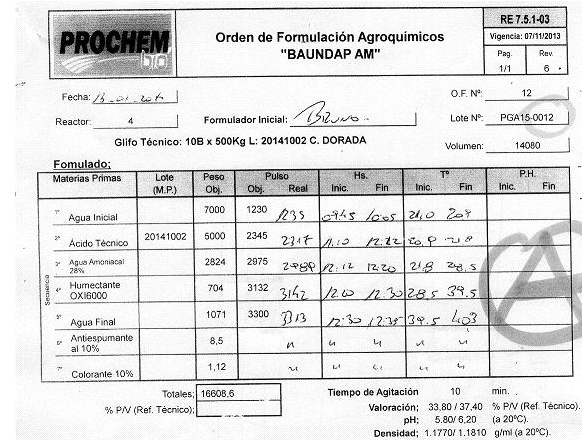 PROCHEM
bio
Orden de Formulación Agroquímicos
"BAUNDAP AM"
RE 7.5.1-03
Vigencia: 07/11/2013
Pag. Rev.
1/1 6
Fecha:
O.F. Nº: 12
Reactor: 4
Formulador Inicial: Bruno
Lote Nº: PGA15-0012
Glifo Técnico: 10B x 500Kg L: 20141002 C. DORADA
Volumen: 14080
Fomulado;
Materias Primas Lote (M.P.) Peso Obj. Pulso Obj. Real Hs. Inic. Fin Tº Inic. Fin P.H. Inic. Fin
Secuencia
1º Agua Inicial 7000 1230 1235 09:45 10:05 21,0 20,9
2º Ácido Técnico 20141002 5000 2345 2317 11:10 12:12 20,9 21,8
3º Agua Amoniscal 28% 2824 2975 12:12 12:20 21.8 28,5
4º Humectante OXI6000 704 3132 3142 12:20 12:30 28,5 39,5
5º Agua Final 1071 3300 3313 12:30 12:35 39,5 40,3
6º Antiespumante al 10% 8,5
7º Colorante 10% 1,12
Totales; 16608,6
% P/V (Ref. Técnico);
Tiempo de Agitación 10 min.
Valoración; 33,80 / 37,40 % P/V (Ref. Técnico)
pH; 5.80/ 6,20 (a 20°C).
Densidad; 1.1770/ 1.1810 g/ml (a 20°C).